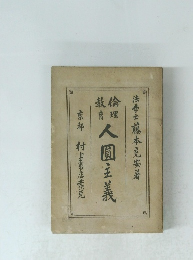 法学士藤本充安著
倫理
教育
人圓主義
京都 村上書店発兌